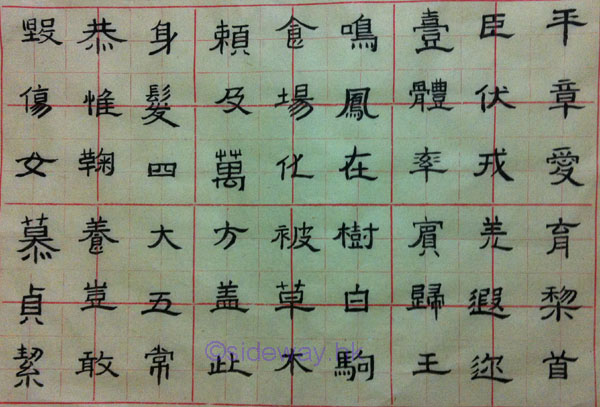 平章愛育黎首
臣伏戎羌遐迩
壹體率賓歸王
鳴鳳在樹白駒
食場化被草木
頼及萬方盖此
身髮四大五常
恭惟鞠養豈敢
毀傷女慕貞絜
©sideway.hk